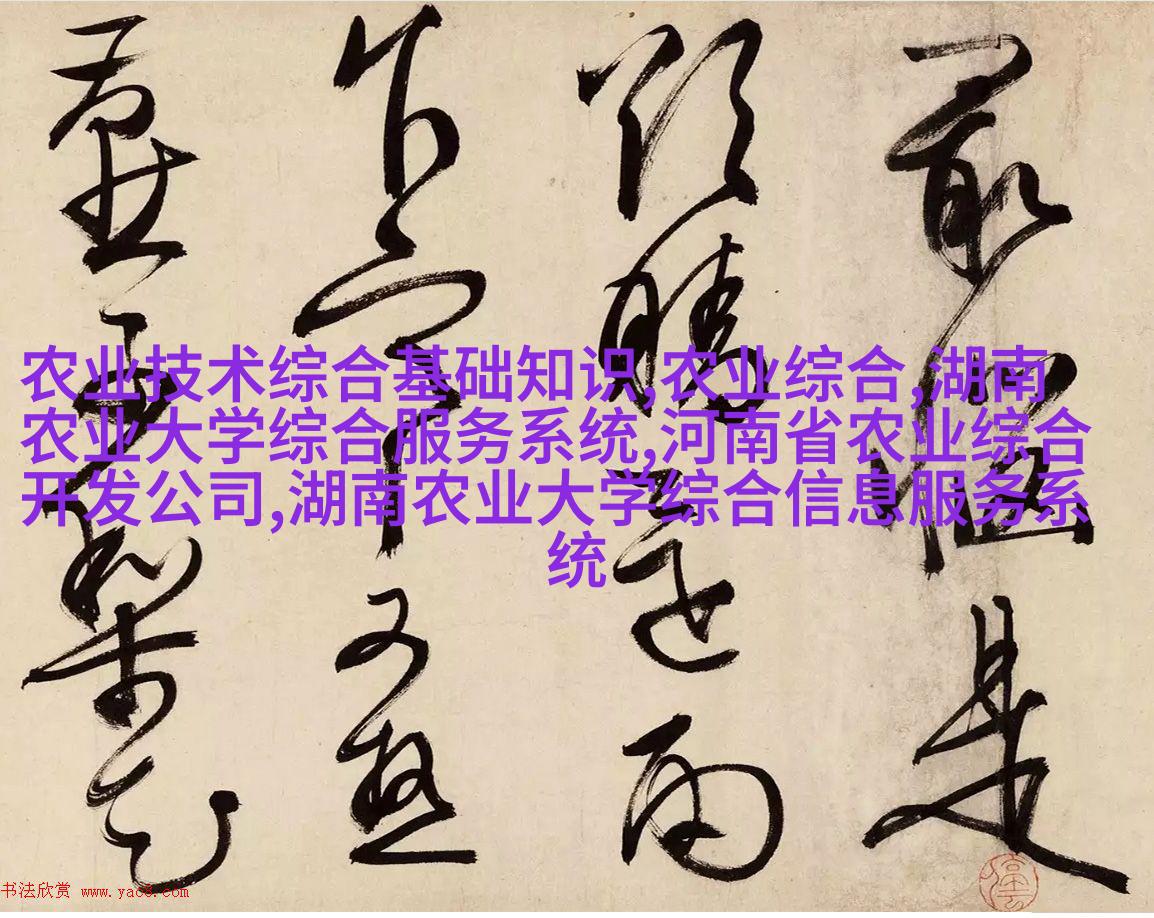 最惱是
欲晴還雨
乍寒又熱
燕子梨花
农业技术综合基础知识,农业综合,湖南
农业大学综合服务系统,河南省农业综合
开发公司,湖南农业大学综合信息服务系
统
书法欣赏 www.yac8.com